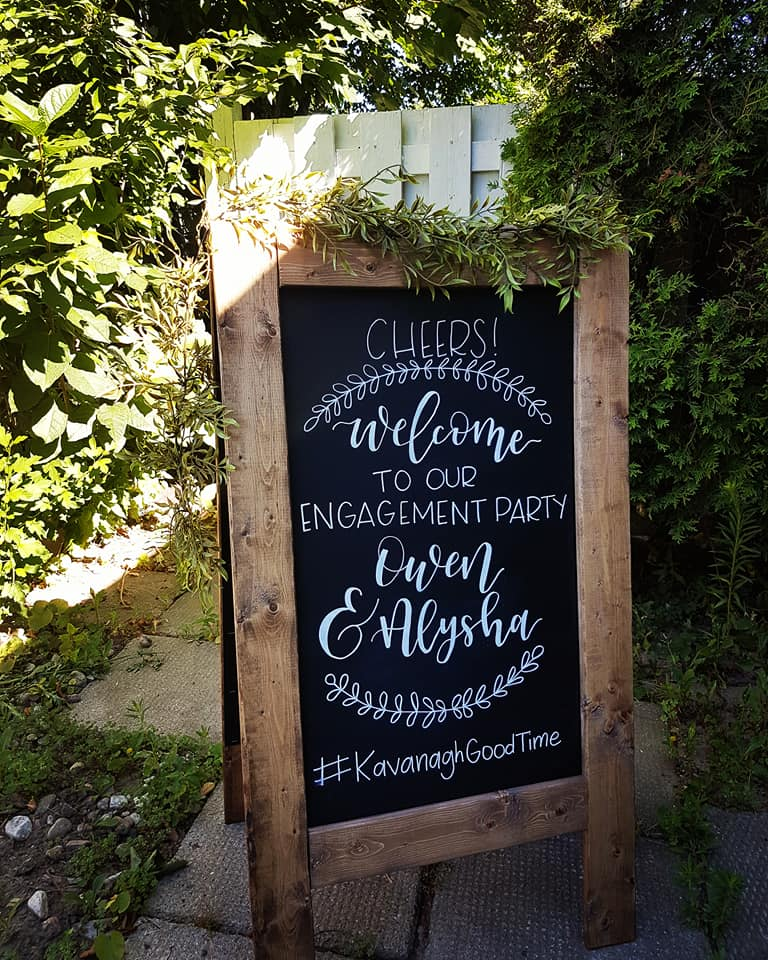 CHEERS!
Welcome
TO OUR
ENGAGEMENT PARTY
Owen
& Alysha
#KavanaghGoodTime